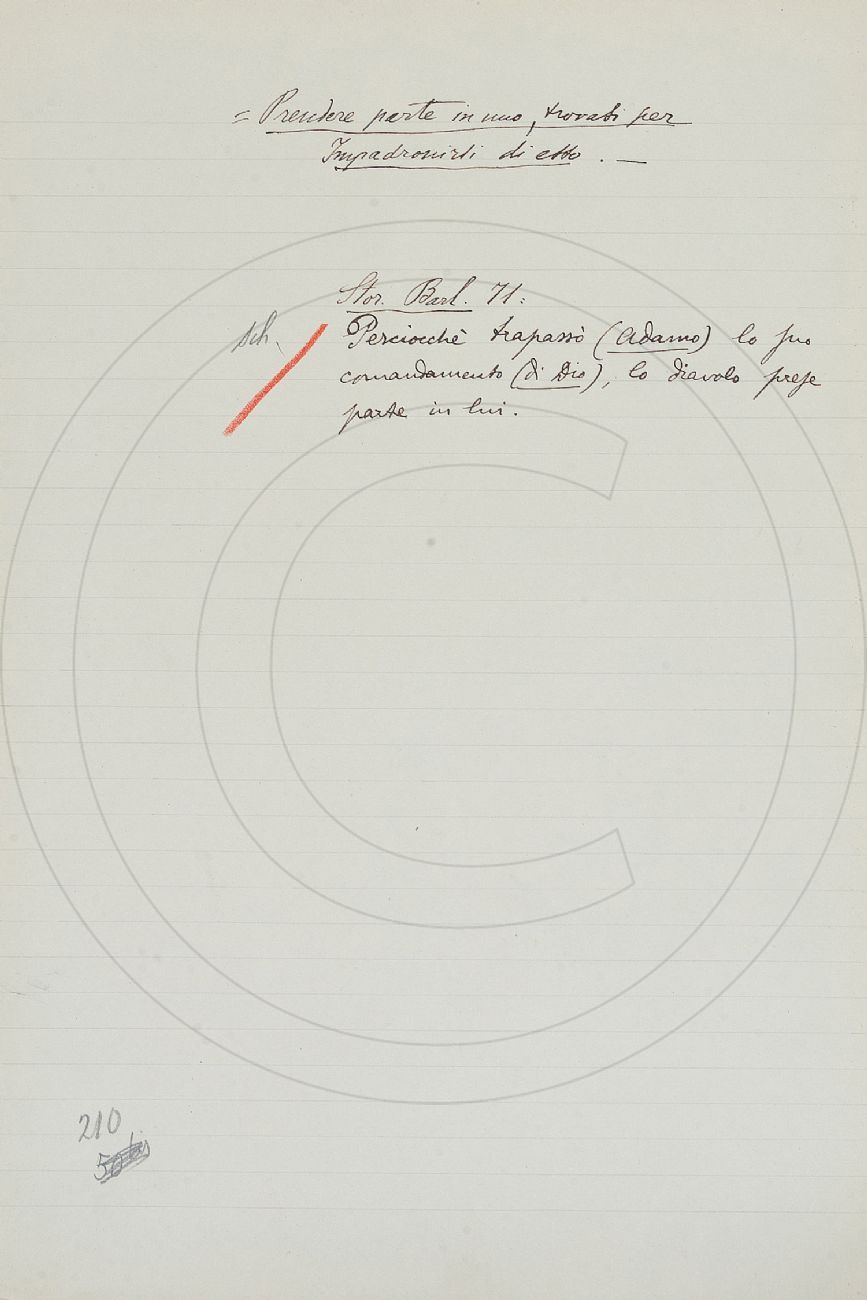 = Prendere parte in uno, trovasi per
Impadronirsi di esso . —
Stor. Barl. 71:
Sch.
Perciocchè trapassò (Adamo) lo suo
comandamento (di Dio), lo diavolo prese
parte in lui.
210